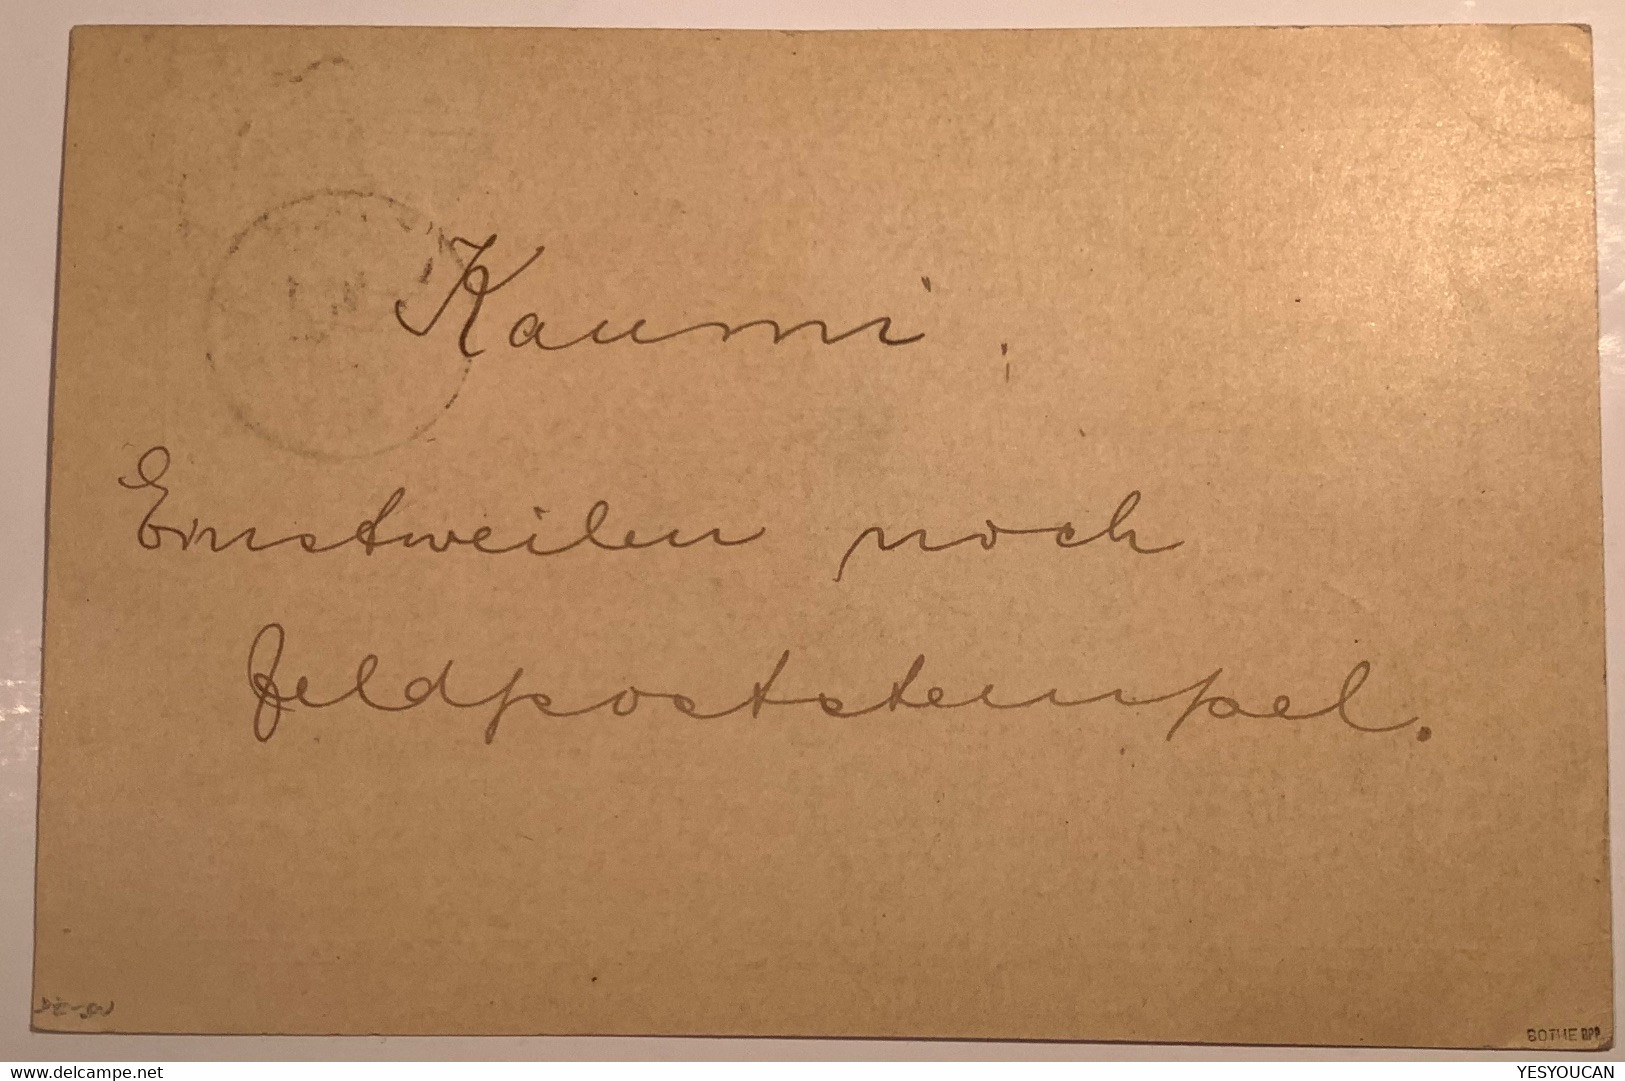 Kaumi:
Einstweilen noch
Feldpoststempel.
BOTHE BPP
www.delcampe.net
YESYOUCAN